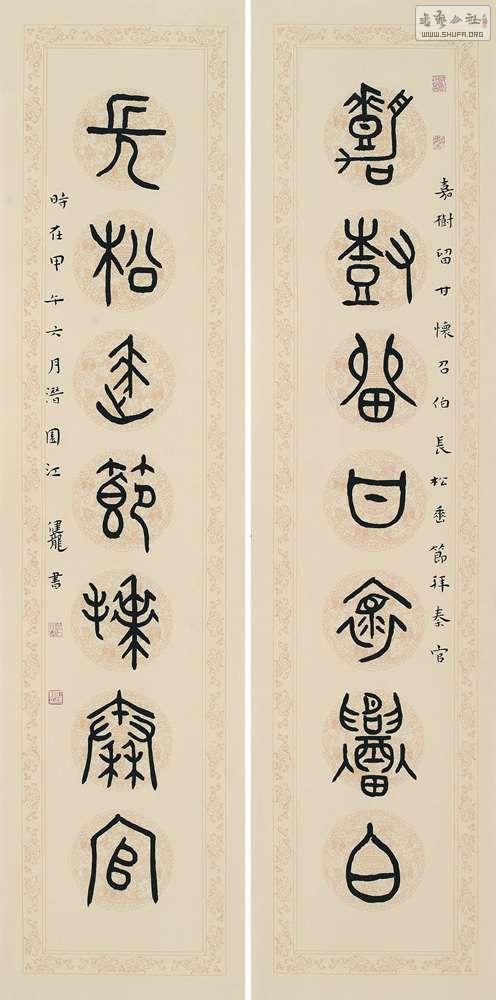 嘉樹留甘懷召伯
嘉樹留甘懷召伯長松垂節拜秦官
長松垂節拜秦官
時在甲午六月潛園江健龍書
書藝公社
WWW.SHUFA.ORG